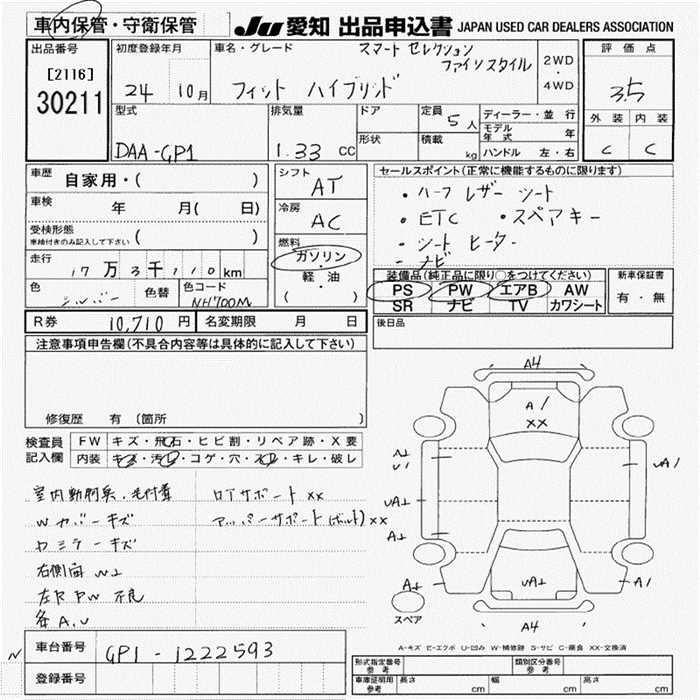 車内保管・守衛保管
JU 愛知 出品申込書 JAPAN USED CAR DEALERS ASSOCIATION
出品番号
[2116]
30211
初度登録年月
24 10月
車名・グレード
スマート セレクション
ファインスタイル
フィット ハイブリッド
2WD
・
4WD
評価点
3.5
外装 内装
C C
型式
DAA-GP1
排気量
1.33 CC
ドア
形状
定員 5人
積載 kg
ディーラー・並行
モデル年式 年
ハンドル 左・右
車歴 自家用・( )
車検 年 月( 日)
受検形態
車検付きのみ記入して下さい ( )
走行
17万3千110km
色 シルバー 色替
色コード NH700M
シフト
AT
冷房
AC
燃料
ガソリン
・
軽・油
( )
セールスポイント(正常に機能するものに限ります)
・ハーフ レザー シート
・ETC ・スペアキー
・シート ヒーター
・ナビ
装備品(純正品に限り○をつけてください)
PS PW エアB AW
SR ナビ TV カワシート
新車保証書
有・無
R券 10,710円
名変期限 月 日
後日品
注意事項申告欄(不具合内容等は具体的に記入して下さい)
修復歴 有 (箇所 )
検査員
記入欄
FW キズ・飛石・ヒビ割・リペア跡・X要
内装 キズ・汚レ・コゲ・穴・スレ・キレ・破レ
Wカバーキズ
ロアサポート XX
アッパーサポート(ボルト) XX
左R PW 不良
各A.U
A4
A1
XX
UA1
UA⊥
A⊥
UA⊥
A⊥
A1
A4
スペア
A-キズ E-エクボ U-凹み W-補修跡 S-サビ C-腐食 XX-交換済
N
車台番号 GP1-1222593
登録番号
形式指定番号
参考
類別区分番号
参考
車庫証明用
参考
長さ cm
幅 cm
高さ cm